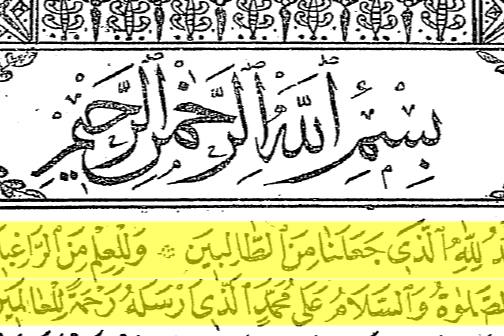 بِسْمِ اللَّهِ الرَّحْمٰنِ الرَّحِيمِ
لِلّٰهِ الَّذٖى جَعَلَنَا مِنَ الطَّالِبٖينَ ۞ وَلِلْعِلْمِ مِنَ
وَالسَّلَامُ عَلٰى مُحَمَّدٍ الَّذٖى اَرْسَلَهُ رَحْمَةً لِلْعَالَمٖينَ